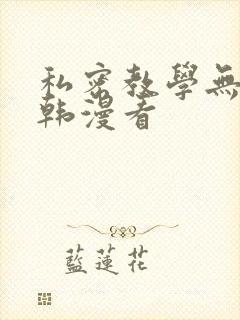 私密教學無
韩漫看
藍蓮花